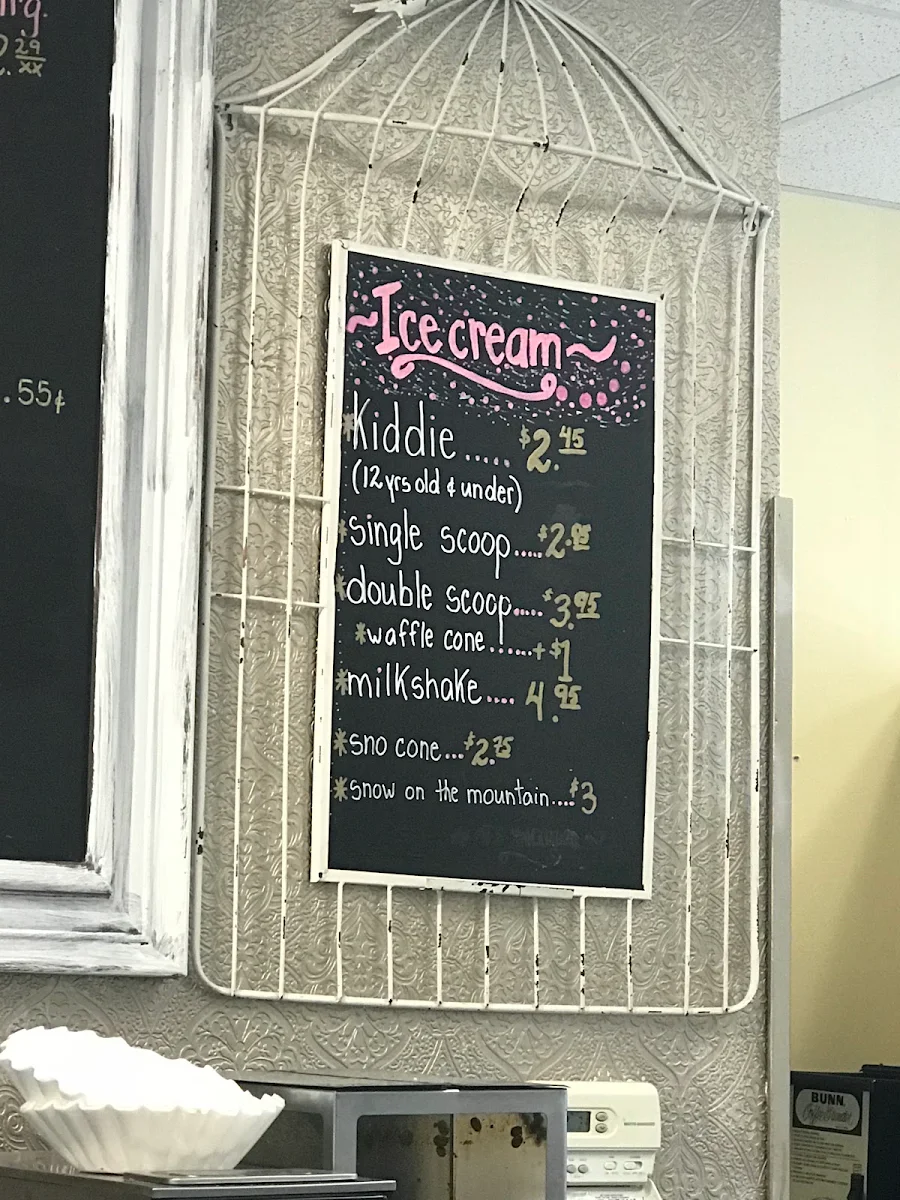 .55¢
~Ice cream~
*Kiddie ..... $2.45
(12 yrs old & under)
*single scoop.....$2.95
*double scoop.....$3.95
*waffle cone......+$1
*milkshake.... 4.95
*sno cone...$2.75
*snow on the mountain....$3
BUNN